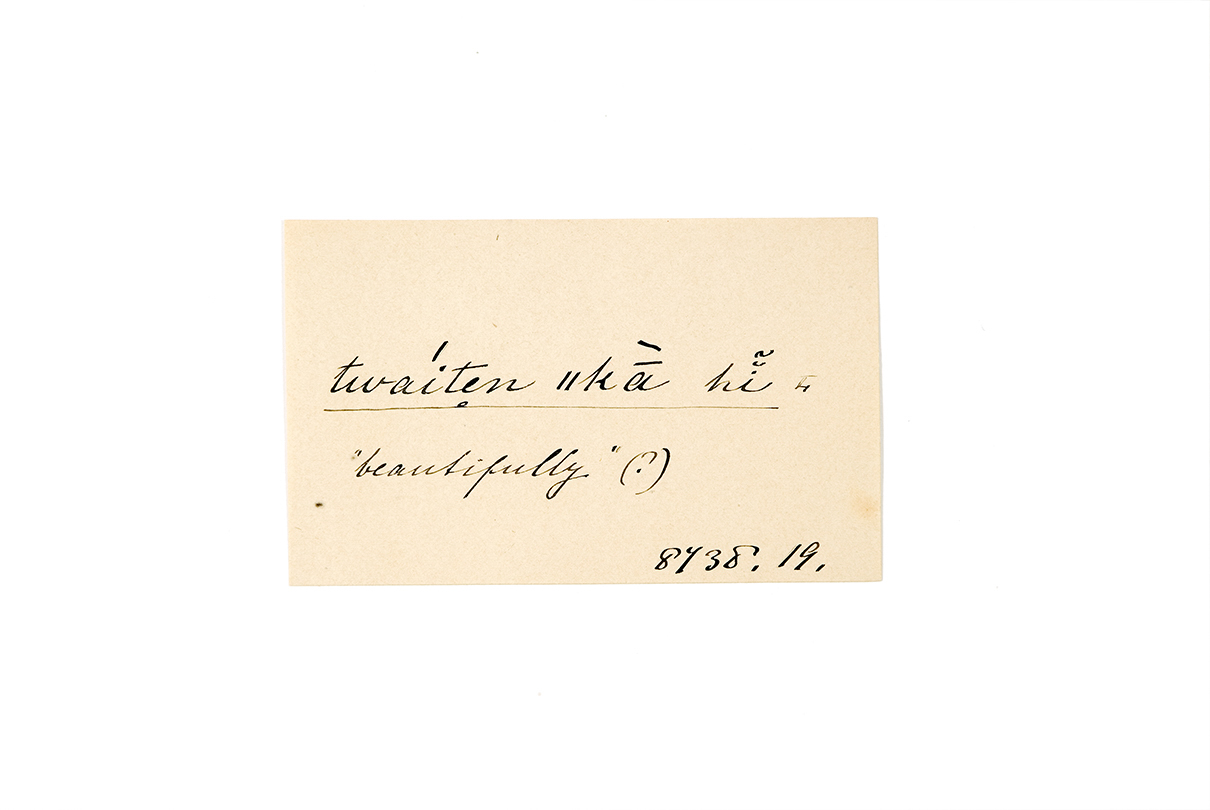 twaíte̥n ‖kā̀ hĩ̌ =
"beautifully" (?)
8738. 19.